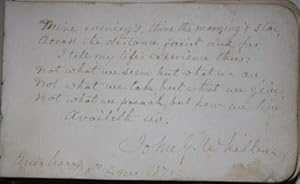 Mine evening's, thine the morning's star,
Across the distance faint and far
I tell my life's experience thus:
Not what we seem but what we are,
Not what we take, but what we give,
Not what we preach, but how we live
Availeth us.
John G. Whittier